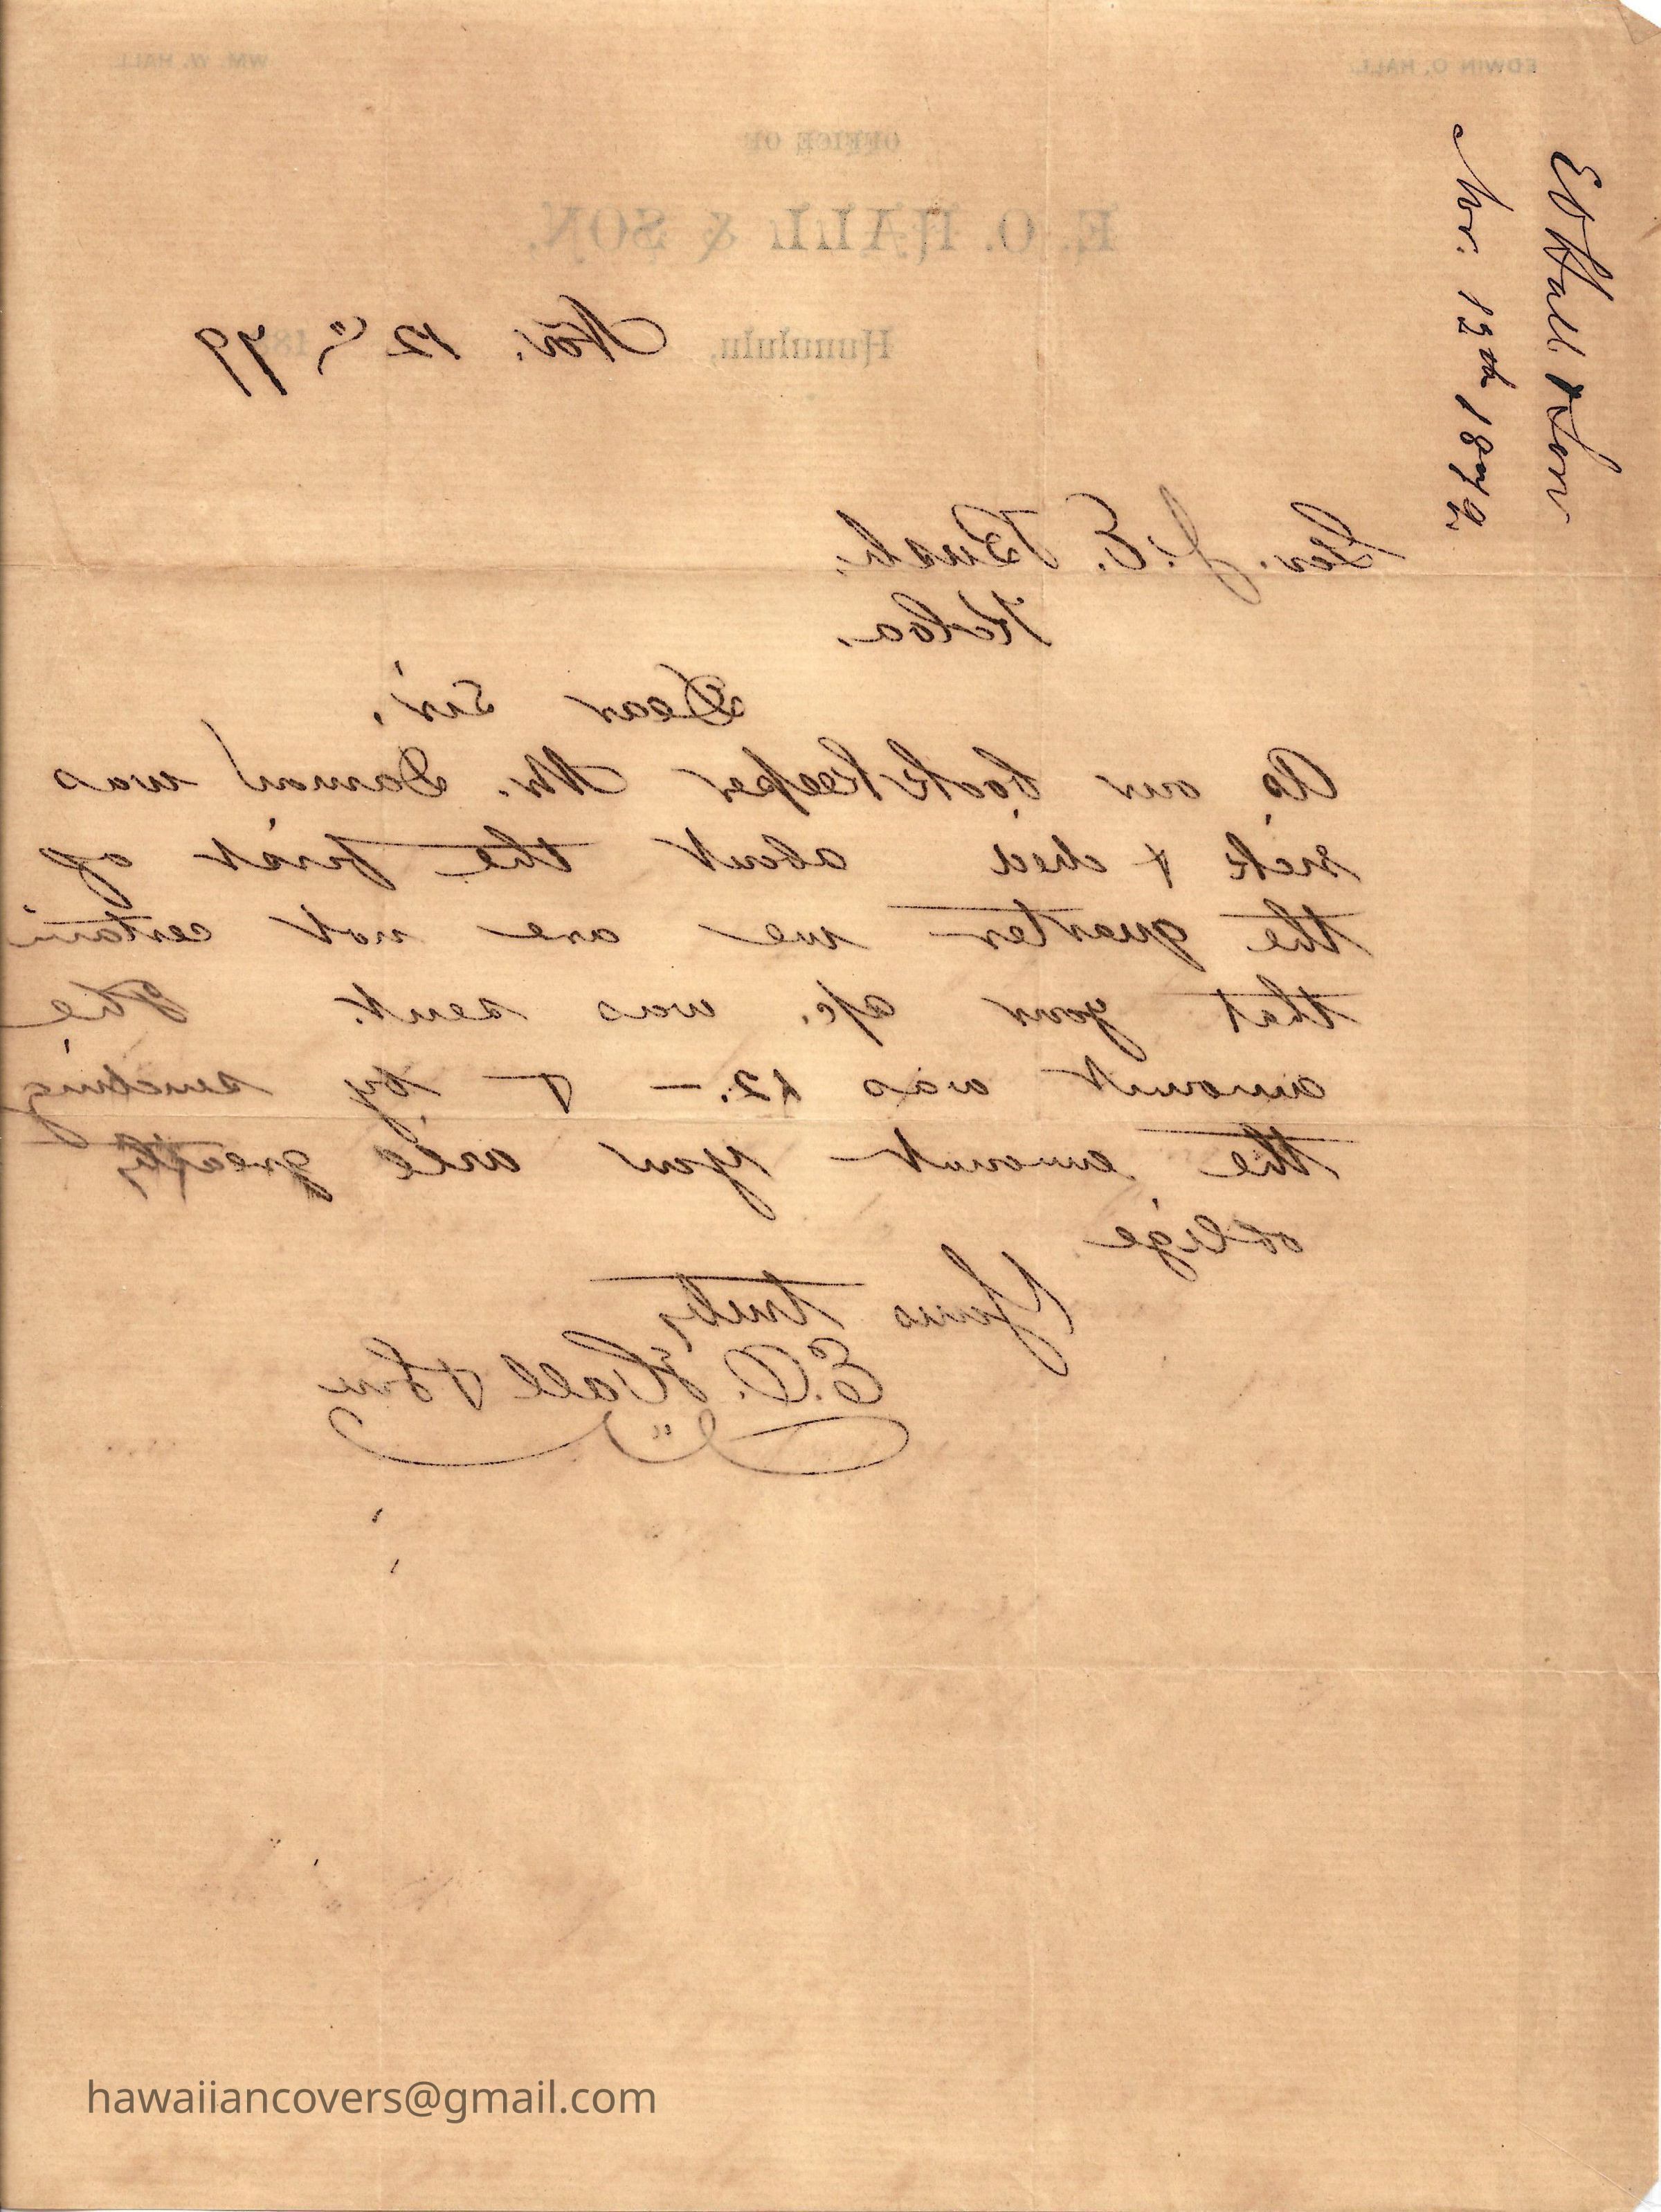 E O Hall & Son
Nov. 12th 1879.
EDWIN O. HALL.
WM. W. HALL.
OFFICE OF
E. O. HALL & SON.
Honolulu, Nov. 12th 1879
J. E. Bush,
Koloa,
Dear Sir,
As our bookkeeper Mr. Damon was
sick & died about the first of
the quarter we are not certain
that your a/c. was sent. The
amount was 12.— & by sending
the amount you will greatly
oblige
Yours truly
E. O. Hall & Son
hawaiiancovers@gmail.com